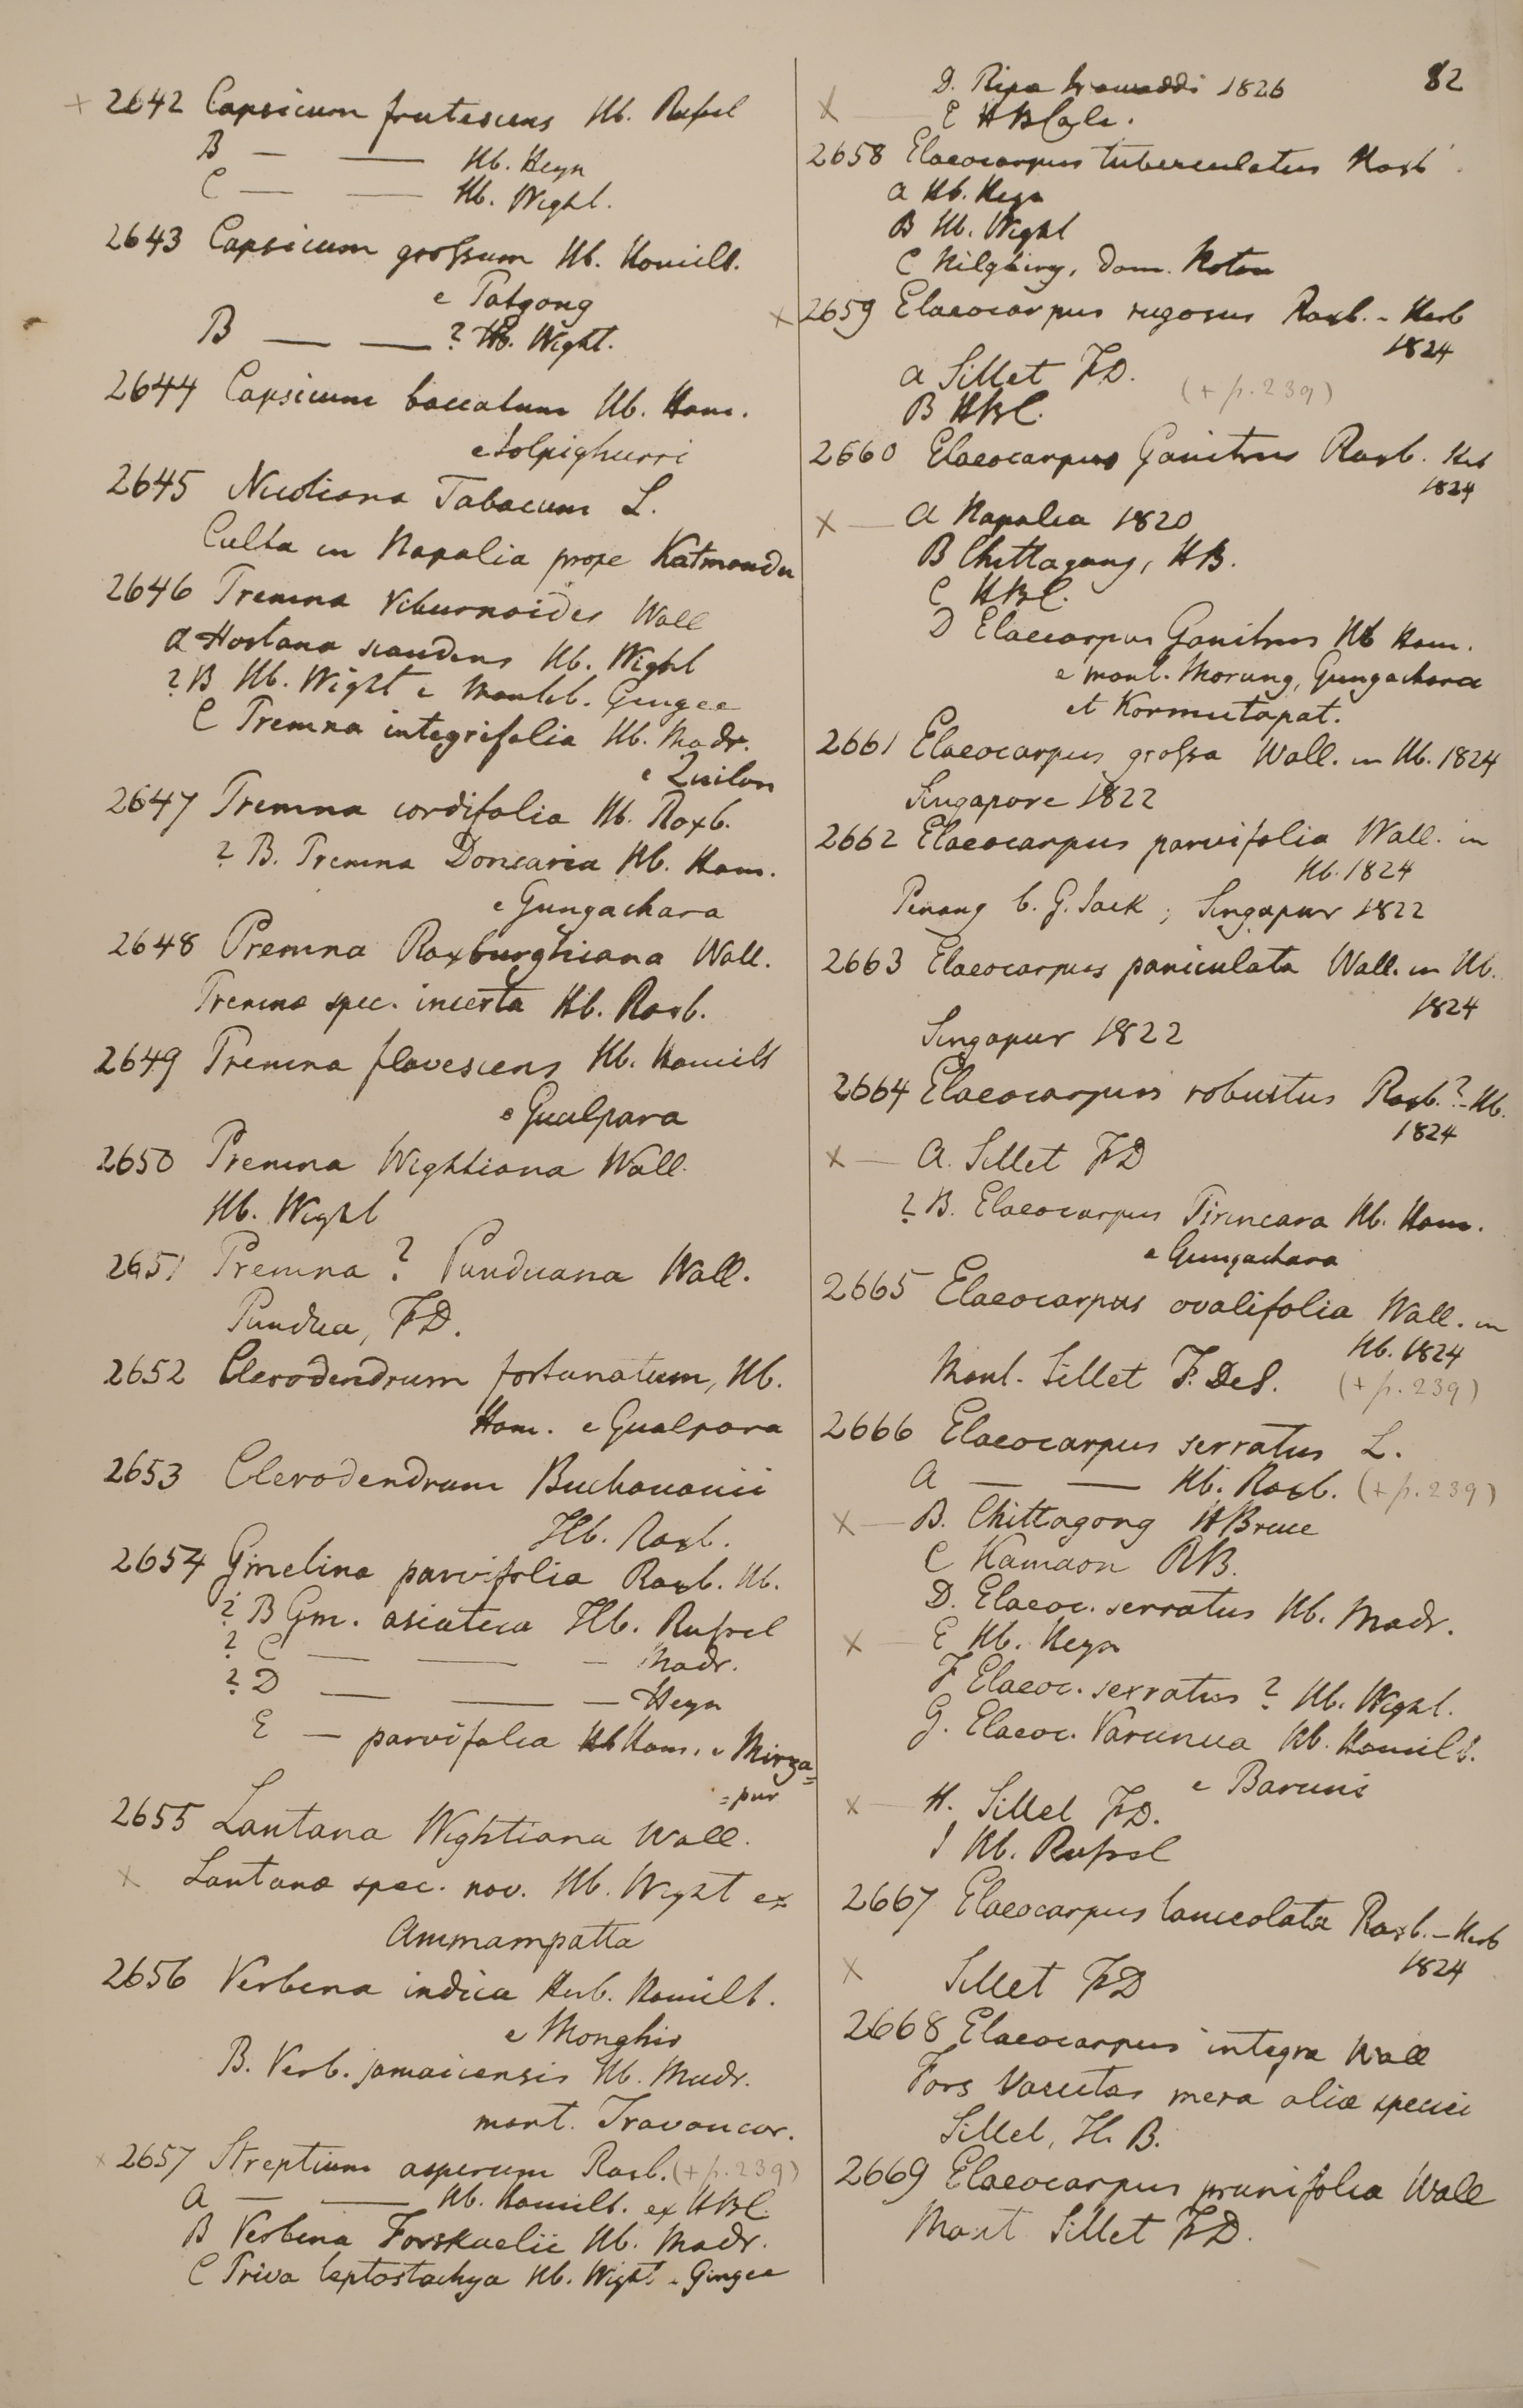 82
× 2642 Capsicum frutescens Hb. Russel
B — — Hb. Heyn
C — — Hb. Wight.
2643 Capsicum grossum Hb. Hamilt.
e Patgong
B — — ? Hb. Wight.
2644 Capsicum baccatum Hb. Ham.
e Solpighurri
2645 Nicotiana Tabacum L.
Culta in Napalia prope Katmandu
2646 Premna viburnoides Wall
a Hostana scandens Hb. Wight
? B Hb. Wight e Gengee
C Premna integrifolia Hb. Madr.
e Quilon
2647 Premna cordifolia Hb. Roxb.
? B. Premna Doncaria Hb. Ham.
e Gungachara
2648 Premna Roxburghiana Wall.
Premna spec. incerta Hb. Roxb.
2649 Premna flavescens Hb. Hamilt
e Gualpara
2650 Premna Wightiana Wall.
Hb. Wight
2651 Premna ? Punduana Wall.
Pundua, FD.
2652 Clerodendrum fortunatum, Hb.
Ham. e Gualpara
2653 Clerodendrum Buchanani
Hb. Roxb.
2654 Gmelina parvifolia Roxb. Hb.
? B Gm. asiatica Hb. Russel
? C — — — Madr.
? D — — — Heyn
E — parvifolia Hb Ham. e Mirza=
=pur
2655 Lantana Wightiana Wall.
× Lantana spec. nov. Hb. Wight ex
Ammampatta
2656 Verbena indica Herb. Hamilt.
e Monghir
B. Verb. jamaicensis Hb. Madr.
mont. Travancor.
× 2657 Streptium asperum Roxb. (+ p. 239)
a — — Hb. Hamilt. ex HBC.
B Verbena Forskaelii Hb. Madr.
C Priva leptostachya Hb. Wight e Gingee
D. Ripa Irawaddi 1826
× — E HBCalc.
2658 Elaeocarpus tuberculatus Roxb.
a Hb. Heyn
B Hb. Wight
C Nilghiry, Dom. Noton
× 2659 Elaeocarpus rugosus Roxb. - Herb
1824
a Sillet FD. (+ p. 239)
B HBC.
2660 Elaeocarpus Ganitrus Roxb. Herb
1824
× — a Napalia 1820
B Chittagong, HB.
C HBC.
D Elaeocarpus Ganitrus Hb Ham.
e mont. Morung, Gungachora
et Kormutapat.
2661 Elaeocarpus grossa Wall. in Hb. 1824
Singapore 1822
2662 Elaeocarpus parvifolia Wall. in
Hb. 1824
Penang b. G. Jack ; Singapur 1822
2663 Elaeocarpus paniculata Wall. in Hb.
1824
Singapur 1822
2664 Elaeocarpus robustus Roxb. ? - Hb.
1824
× — a. Sillet FD
? B. Elaeocarpus Tirincara Hb. Ham.
e Gungachara
2665 Elaeocarpus ovalifolia Wall. in
Hb. 1824
Mont. Sillet F. DeS. (+ p. 239)
2666 Elaeocarpus serratus L.
a — — Hb. Roxb. (+ p. 239)
× — B. Chittagong HBruce
C Kamaon RB.
D. Elaeoc. serratus Hb. Madr.
× — E Hb. Heyn
F Elaeoc. serratus ? Hb. Wight.
G. Elaeoc. Varunua Hb. Hamilt.
e Baruni
× — H. Sillet FD.
I Hb. Russel
2667 Elaeocarpus lanceolata Roxb. - Herb
1824
× Sillet FD
2668 Elaeocarpus integra Wall
Fors varietas mera aliae speciei
Sillet, H. B.
2669 Elaeocarpus prunifolia Wall
Mont Sillet FD.